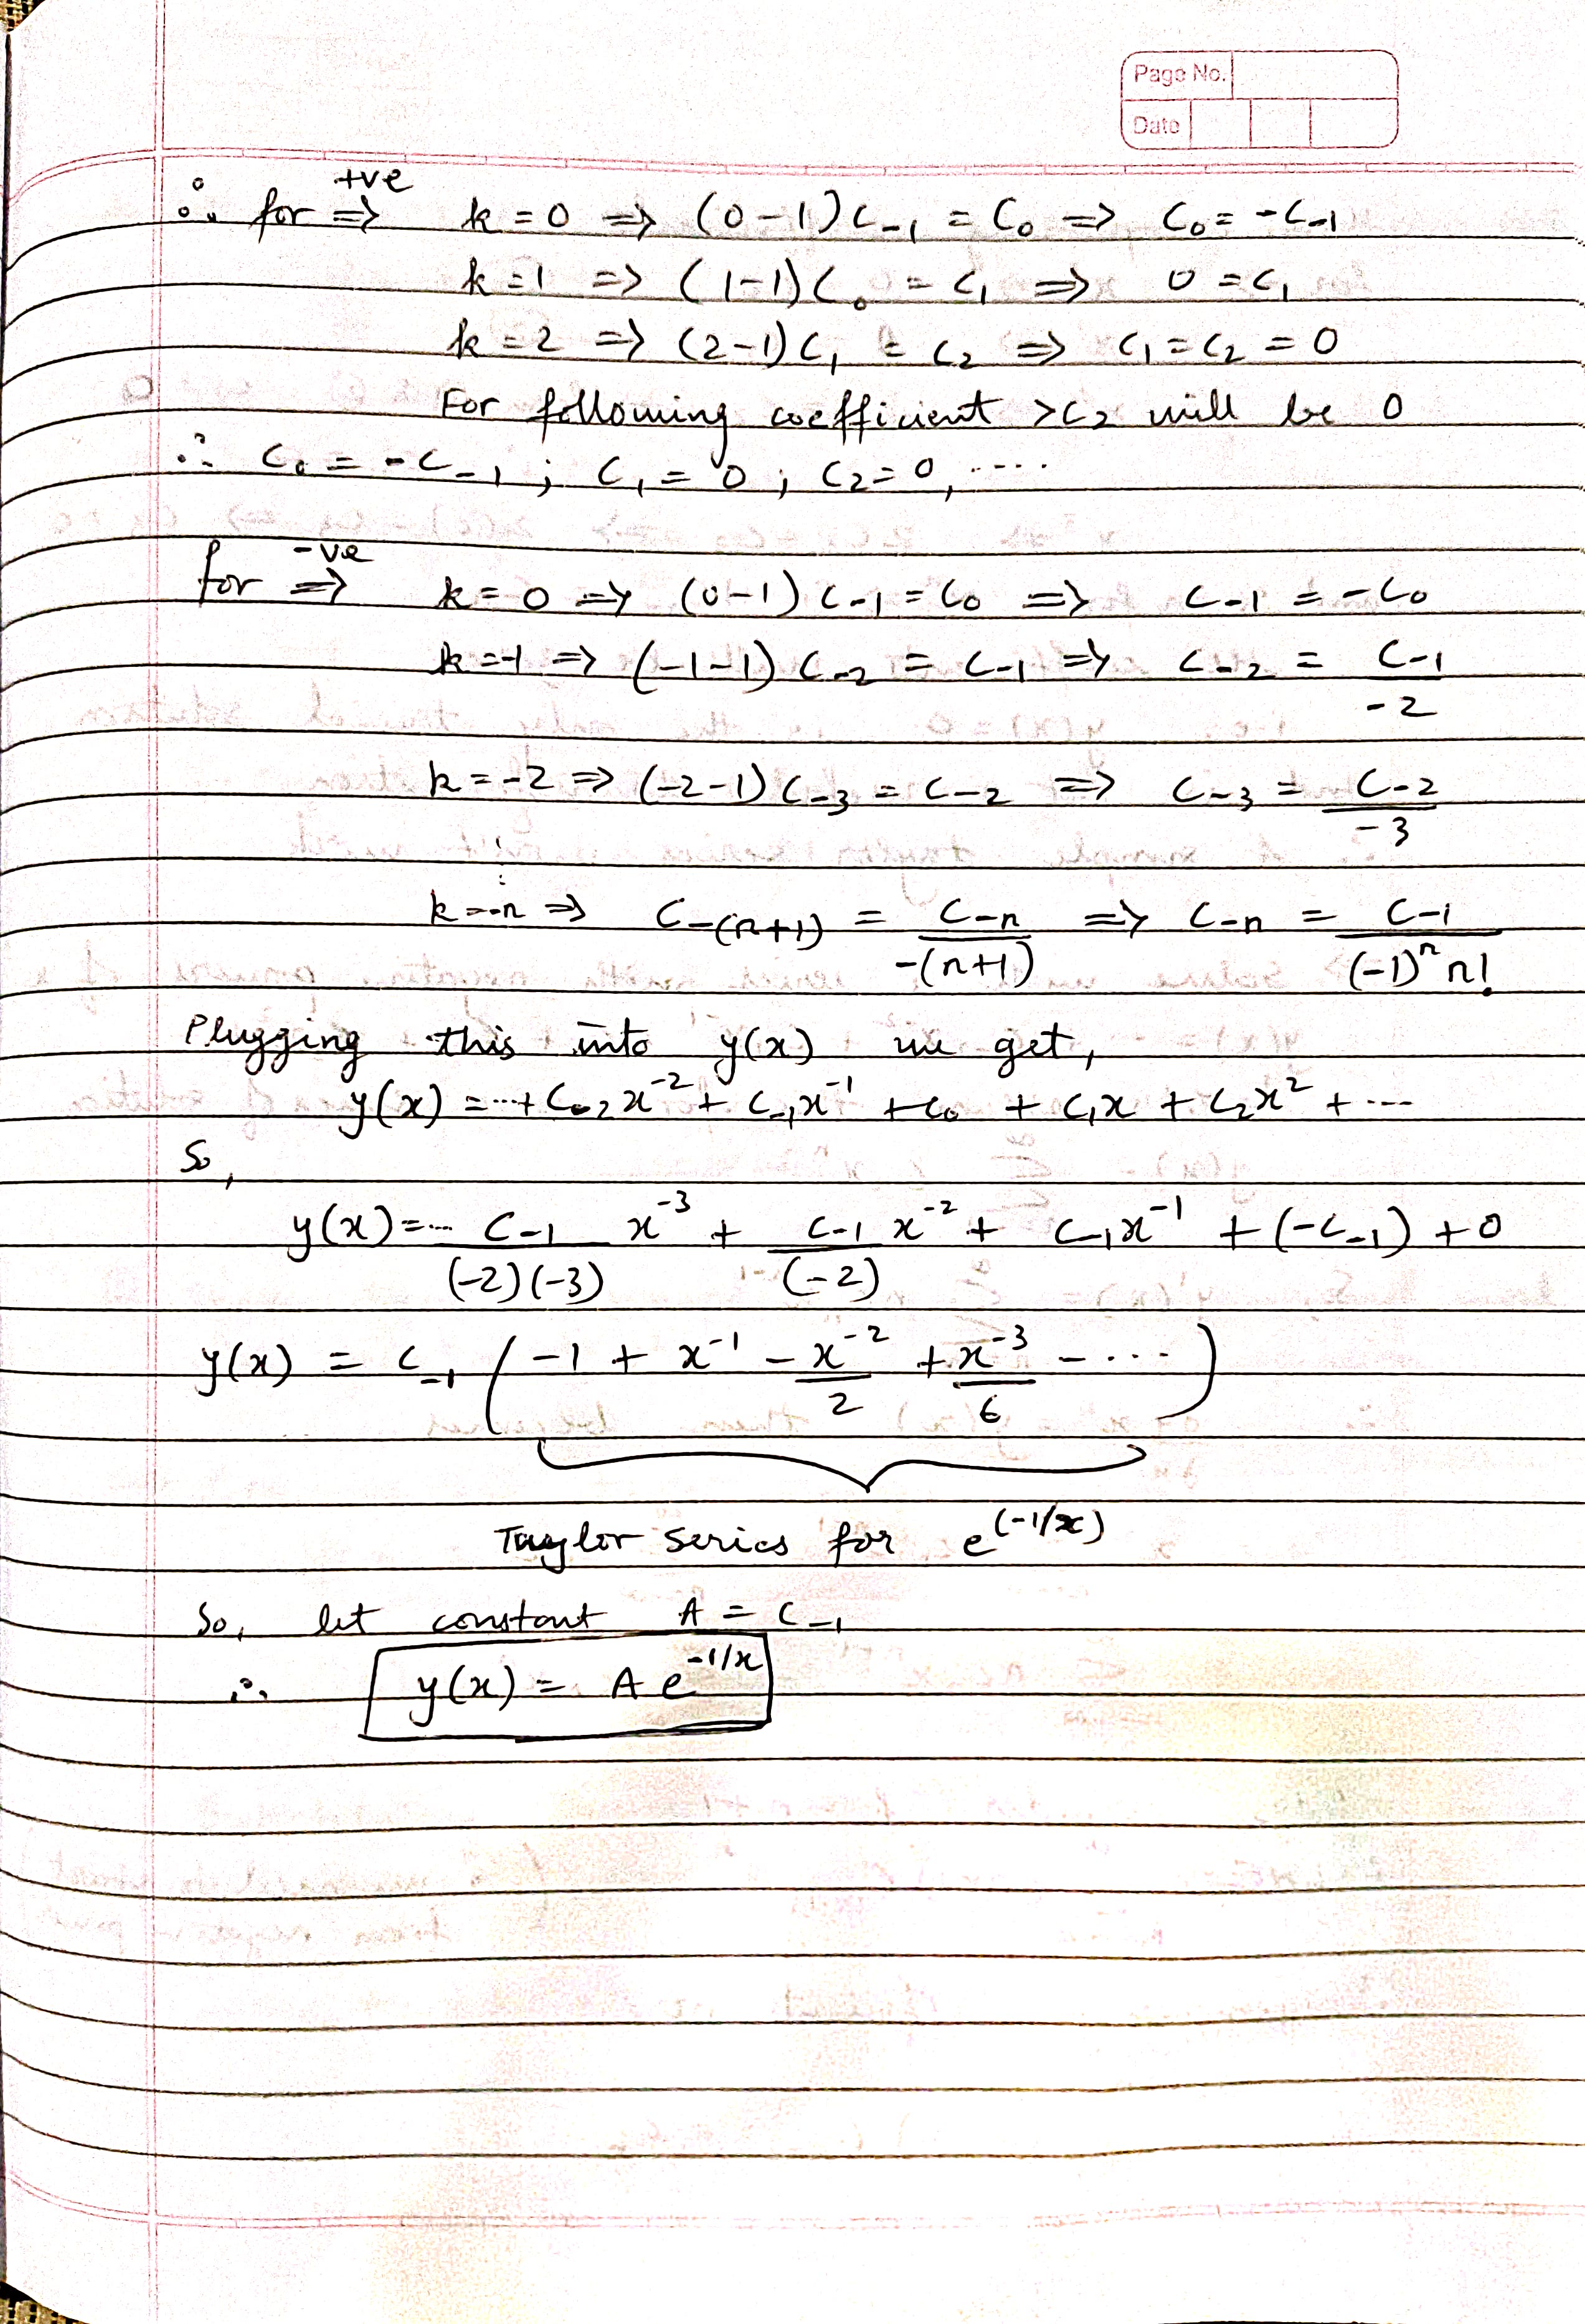 Page No.
Date
∴ for +ve ⇒ k = 0 ⇒ (0-1)C₋₁ = C₀ ⇒ C₀ = -C₋₁
k = 1 ⇒ (1-1)C₀ = C₁ ⇒ 0 = C₁
k = 2 ⇒ (2-1)C₁ = C₂ ⇒ C₁ = C₂ = 0
For following coefficient >C₂ will be 0
∴ C₀ = -C₋₁ ; C₁ = 0 ; C₂ = 0, ....
for -ve ⇒ k = 0 ⇒ (0-1) C₋₁ = C₀ ⇒ C₋₁ = -C₀
k = -1 ⇒ (-1-1) C₋₂ = C₋₁ ⇒ C₋₂ = C₋₁ / -2
k = -2 ⇒ (-2-1) C₋₃ = C₋₂ ⇒ C₋₃ = C₋₂ / -3
⋮
k = -n ⇒ C₋₍ₙ₊₁₎ = C₋ₙ / -(n+1) ⇒ C₋ₙ = C₋₁ / (-1)ⁿ n!
Plugging this into y(x) we get,
y(x) = ...+ C₋₂x⁻² + C₋₁x⁻¹ + C₀ + C₁x + C₂x² + ...
So,
y(x) = ... C₋₁ / (-2)(-3) x⁻³ + C₋₁ / (-2) x⁻² + C₋₁x⁻¹ + (-C₋₁) + 0
y(x) = C₋₁ ( -1 + x⁻¹ - x⁻² / 2 + x⁻³ / 6 - .... )
Taylor series for e^(-1/x)
So, let constant A = C₋₁
∴ y(x) = A e^-1/x